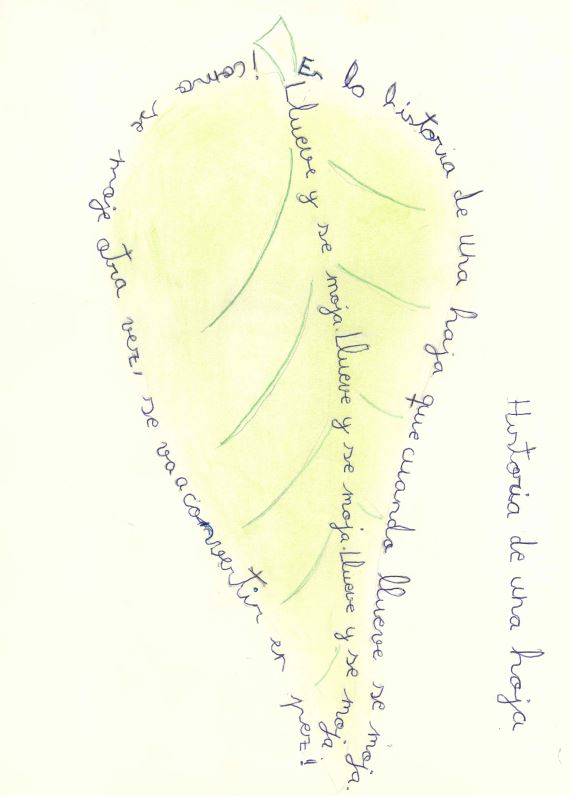 Historia de una hoja
Es la historia de una hoja que cuando llueve se moja.
Llueve y se moja. Llueve y se moja. Llueve y se moja
¡Como se moje otra vez, se va a convertir en pez!